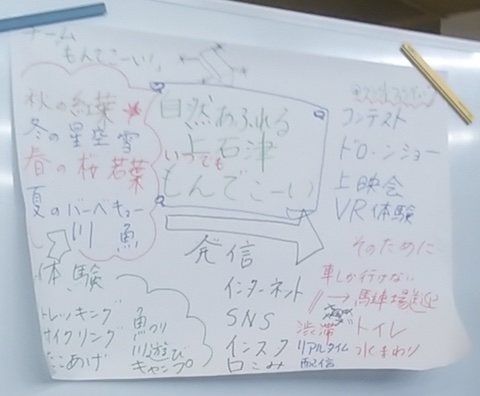 チーム
もんでこーい!
秋の紅葉
冬の星空雪
春の桜若葉
夏のバーベキュー
川 魚
体験
トレッキング
サイクリング
たこあげ
魚つり
川遊び
キャンプ
自然あふれる
上石津
いつでも
もんでこーい
発信
インターネット
SNS
インスタ
口こみ
コンテスト
ドローンショー
上映会
VR体験
そのために
車しか行けない
→馬車場送迎
渋滞
トイレ
リアルタイム
配信
水まわり